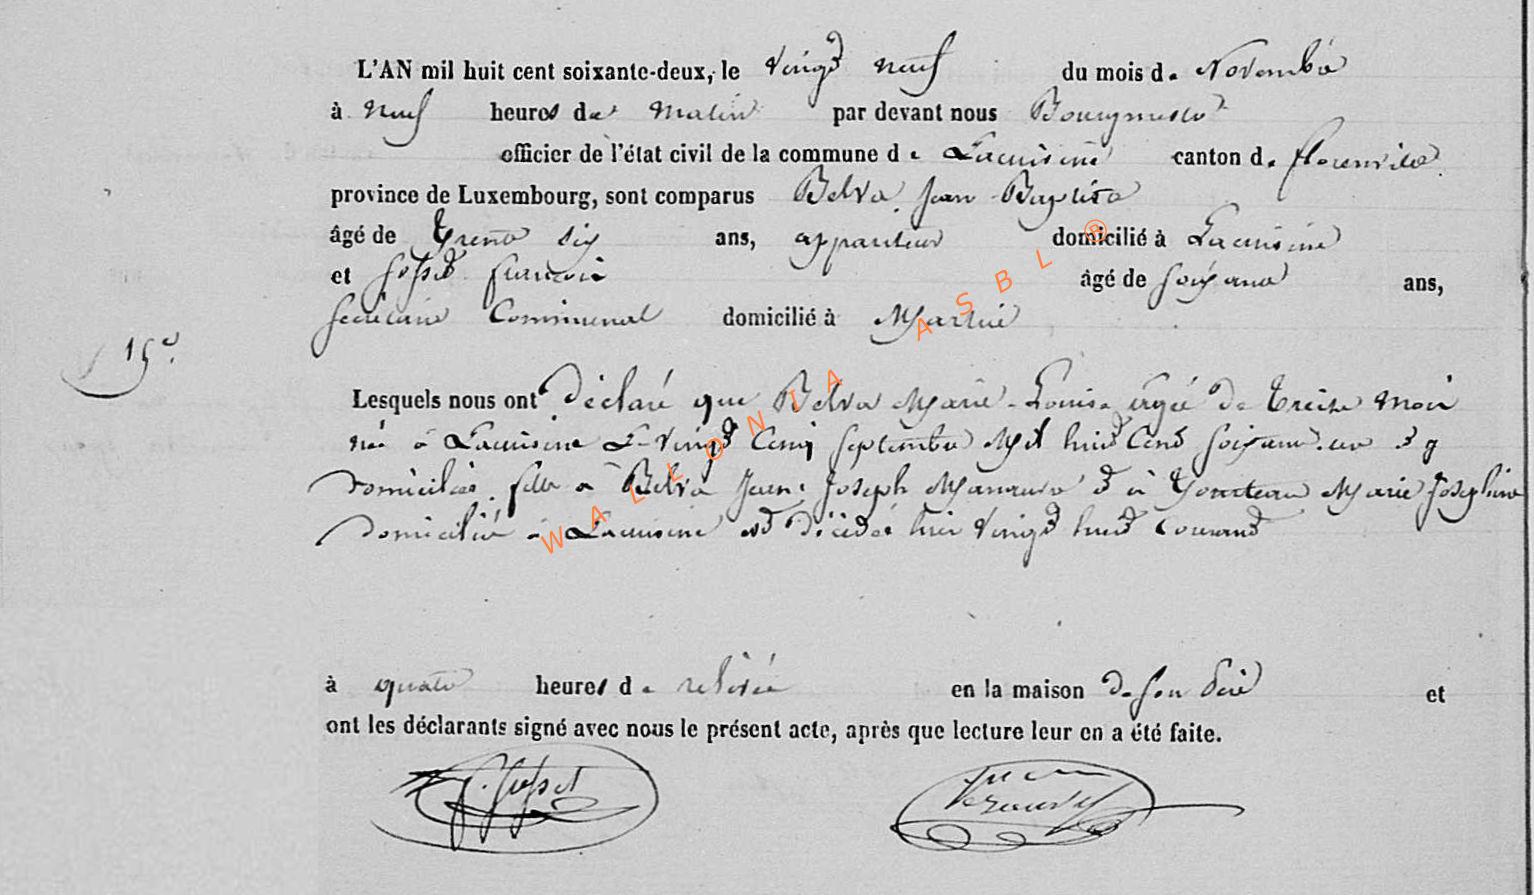 L'AN mil huit cent soixante-deux, le vingt neuf du mois de Novembre
à neuf heures du matin par devant nous Bourgmestre
officier de l'état civil de la commune de Lacuisine canton de florenville
province de Luxembourg, sont comparus Belva Jean Baptiste
âgé de Trente six ans, appariteur domicilié à Lacuisine
et françois âgé de soixante ans,
secrétaire Communal domicilié à Martué
15e
Lesquels nous ont Déclaré que Belva Marie-Louise agée de treize mois
née à Lacuisine le vingt cinq septembre Mil huit cent soixante un et y
domiciliée, fille à Belva Jean Joseph Manœuvre et à Marie Josephine
domiciliés à Lacuisine est décédée hier vingt huit courant
à quatre heures de relevée en la maison de son père et
ont les déclarants signé avec nous le présent acte, après que lecture leur en a été faite.
WALLONIA ASBL ®